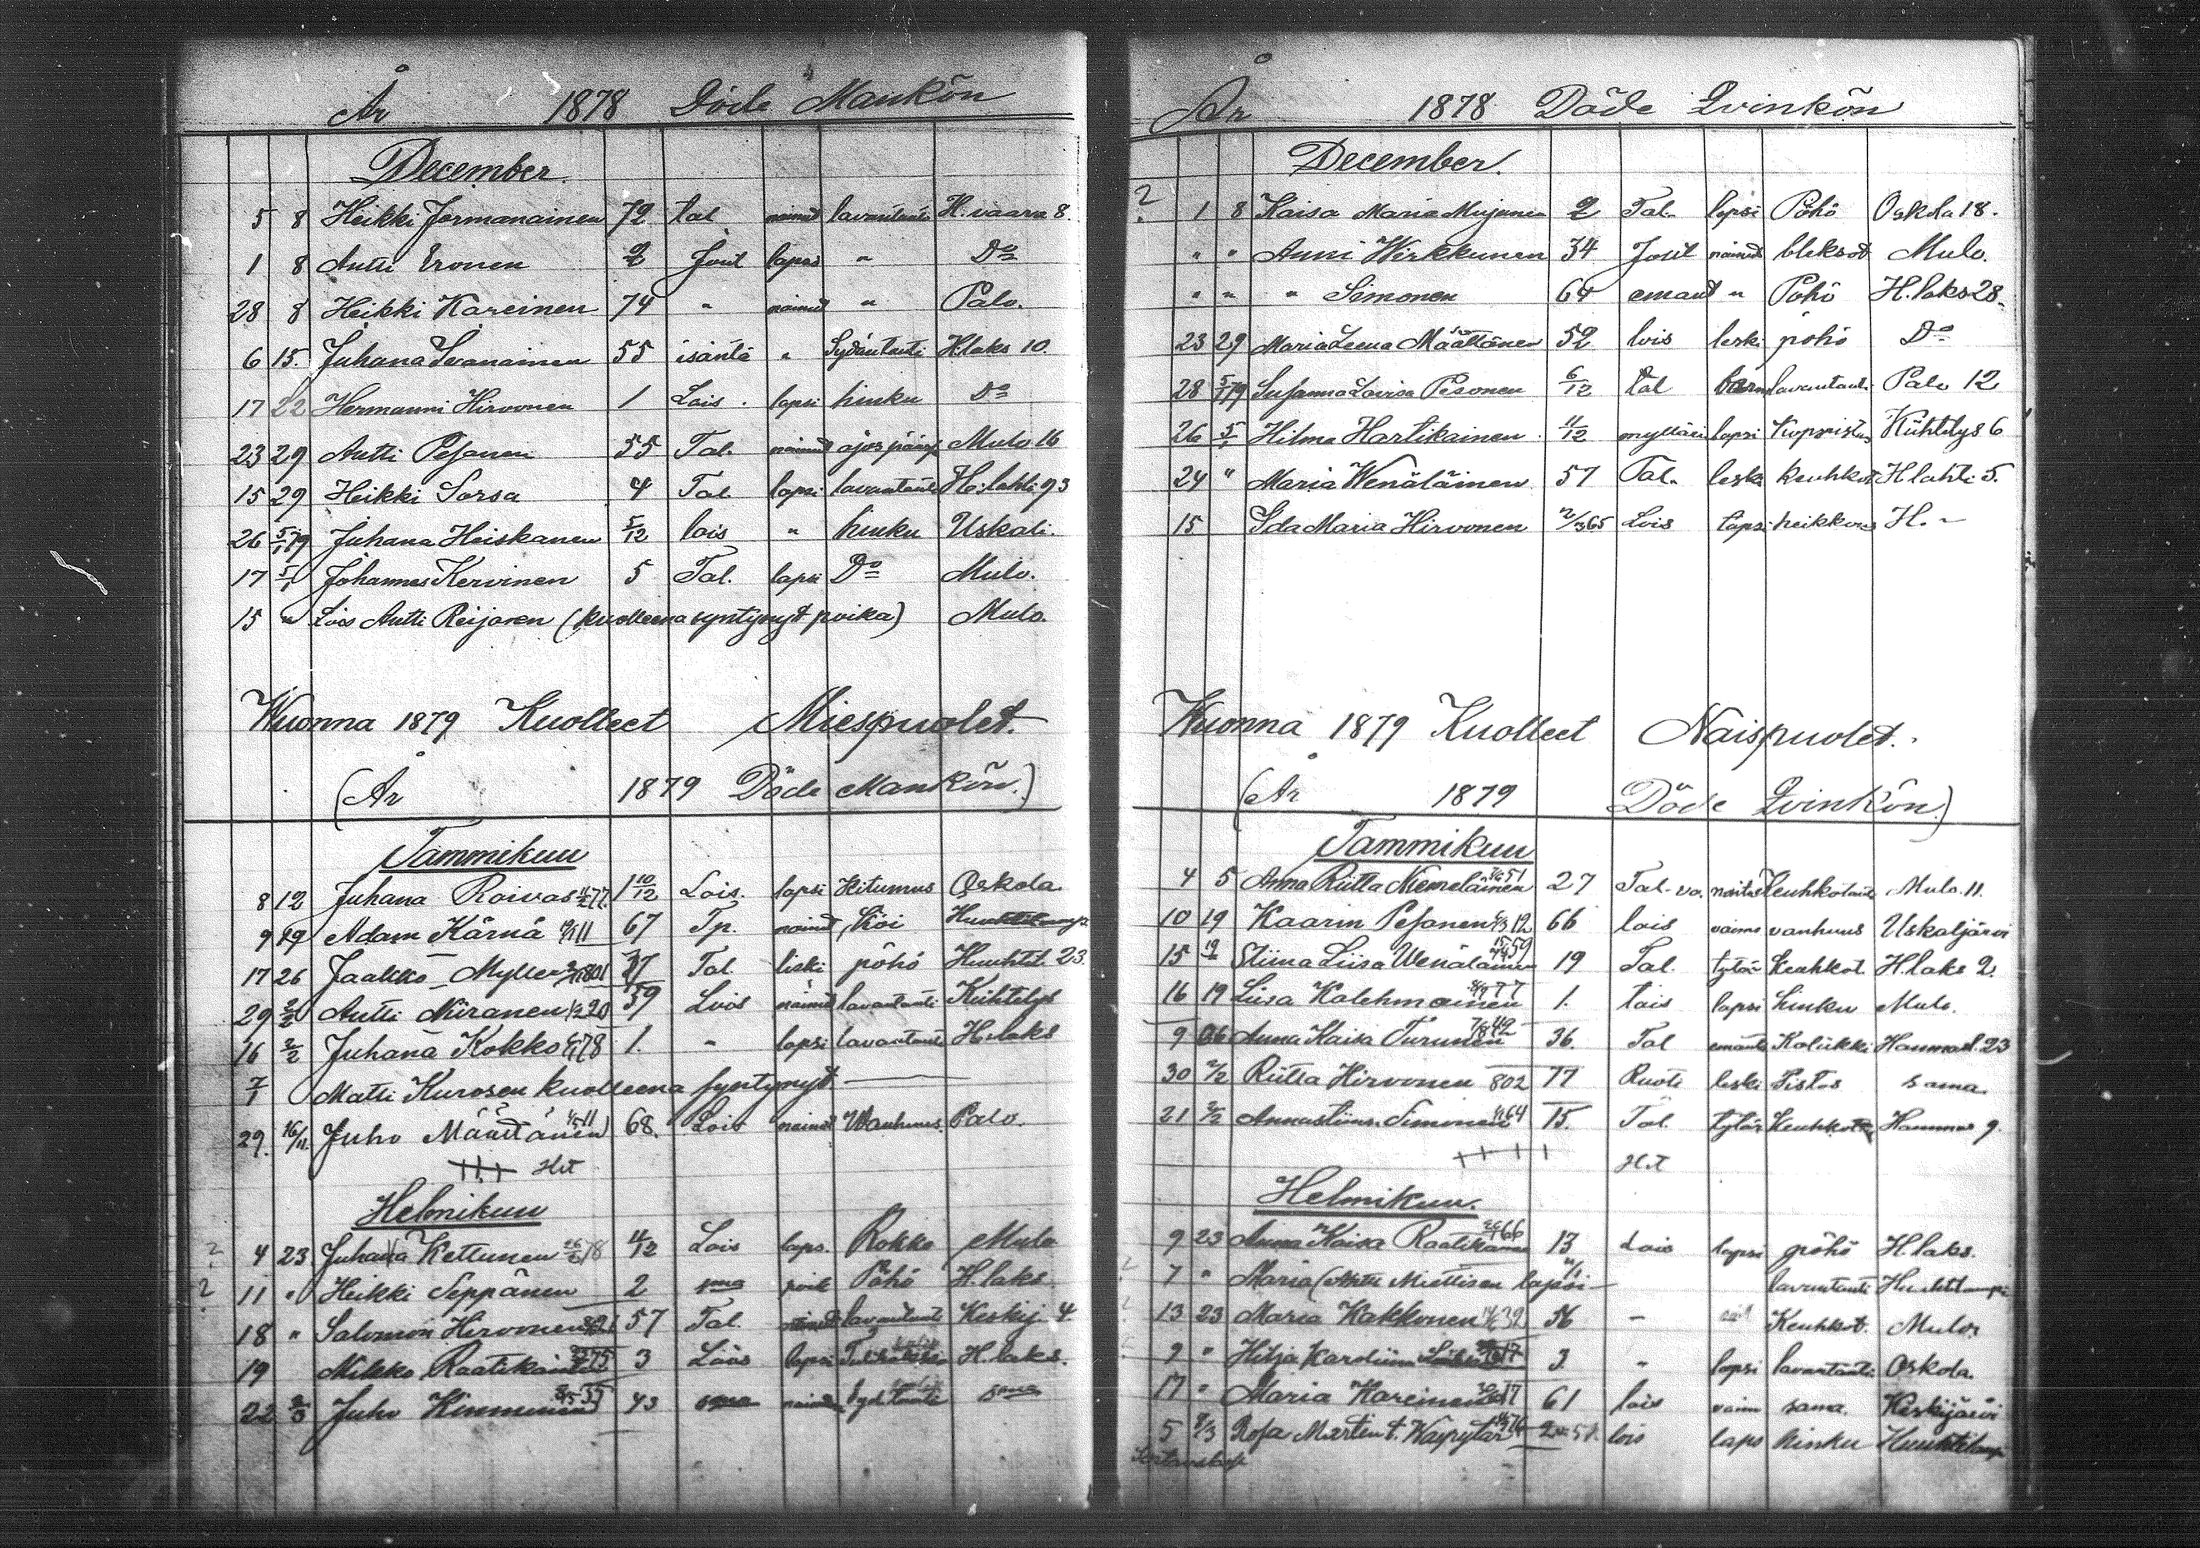 År 1878 Döde Mankön
December
5 8 Heikki Jormanainen 72 tal nainut lavantauti H.vaara 8.
1 8 Antti Eronen 2 Jout lapsi " Do
28 8 Heikki Kareinen 74 " nainut " Palo.
6 15. Juhana Ivanainen 55 isäntä " Sydäntauti H.laks 10.
17 22 Hermanni Hirvonen 1 Lois. lapsi hinku Do
23 29 Antti Pesonen 55 Tal. nainut Mulo 16
15 29 Heikki Sorsa 4 Tal lapsi lavantauti H:lahti 93
26 5/1 79 Juhana Heiskanen 5/12 lois " hinku Uskali.
17 5/1 Johannes Kervinen 5 Tal. lapsi Do Mulo.
15 " Lois Antti Reijonen (kuolleena syntynyt poika) Mulo.
Wuonna 1879 Kuolleet Miespuolet.
(År 1879 Döde Mankön.)
Tammikuu
8 12 Juhana Roivas 77 1 10/12 Lois. lapsi Hitumus Oskola
9 19 Adam Kärnä 11 67 Tp. nainut
17 26 Jaakko Myller 801 77 Tal. leski pöhö Huuht. 23.
29 2/2 Antti Niiranen 20 59 Lois nainut lavantauti Kiihtelys
16 2/2 Juhana Kokko 78 1. " lapsi lavantauti H.laks
7/1 Matti Kurosen kuolleena syntynyt
29. 16/11 Juho Määttänen 11 68. Lois nainut Wanhuus Palo.
Hit
Helmikuu
? 4 23 Juhana Kettunen 78 4/12 Lois laps. Rokko Mulo
? 11 " Heikki Seppänen 2 sma poik Pöhö H.laks
18 " Salomon Hirvonen 57 Tal. nainut lavantauti Keskij 4.
19 Mikko Raatikainen 75 3 Lois lapsi H.laks.
22 2/3 Juho Himmanen 35 43 sma sma
År 1878 Döde Qvinkön
December.
? 1 8 Kaisa Maria Mujunen 2 Tal. lapsi Pöhö Oskola 18.
" " Anni Wirkkunen 34 Jout nainut Mulo.
" " " Simonen 64 emänt " Pöhö H.laks 28.
23 29 Maria Leena Määttänen 52 lois leski pöhö Do
28 5/1 79 Susanna Lovisa Pesonen 6/12 tal barn lavantauti Palo 12
26 5/1 Hilma Hartikainen 4/12 mylläri lapsi Kuporistus Kiihtelys 6
24 " Maria Wenäläinen 57 Tal. leski keuhkot H lahti 5.
15 Ida Maria Hirvonen Lois lapsi heikkous H. "
Wuonna 1879 Kuolleet Naispuolet.
(År 1879 Döde Qvinkön)
Tammikuu
4 5 Anna Riitta Niemeläinen 51 27 Tal. va. Keuhkotauti Mulo 11.
10 19 Kaarin Pesonen 12 66 lois vaimo vanhuus Uskaljärvi
15 19/1 Stiina Liisa Wenäläinen 59 19 Tal. tytär Keuhkot. H.laks 2.
16 19 Liisa Kolehmainen 77 1. lois lapsi hinku Mulo.
9 26 Anna Kaisa Turunen 42 36. Tal emäntä Kolikki Hammasl. 23
30 2/2 Riitta Hirvonen 802 77 Ruoti leski Pistos sama
21 2/2 Annastiina Simonen 64 15. Tal. tytär Keuhkot. Hammas 9.
Hit
Helmikuu.
9 23 Anna Kaisa Raatikainen 66 13 Lois lapsi pöhö H.laks.
7 " Maria (Antti Miettisen lapsi lavantauti Huuhtlampi
13 23 Maria Kakkonen 32 " Keuhkot. Mulo
9 " Hilja Karoliina 3 " lapsi lavantauti Oskola
17 " Maria Kareinen 17 61 lois vaim sama. Keskijärvi
5 2/3 Rosa Martin t. lois laps hinku Huuhtilampi